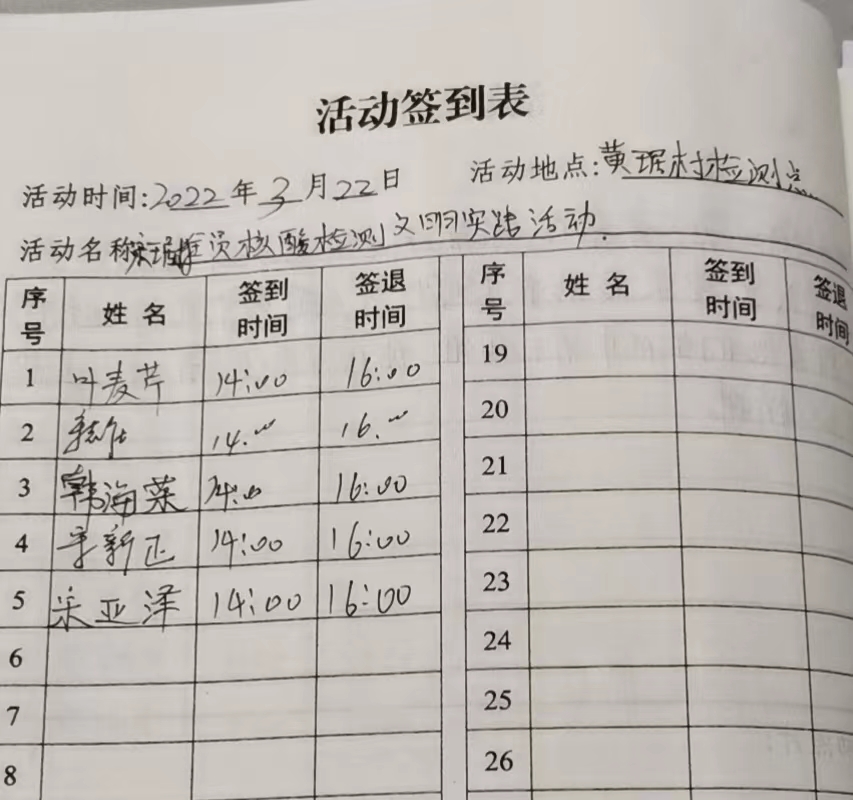 活动签到表
活动时间:2022年3月22日 活动地点:黄琚村检测点
活动名称 全员核酸检测文明实践活动.
序号 姓名 签到时间 签退时间 序号 姓名 签到时间 签退时间
1 叶麦芹 14:00 16:00 19
2 14:00 16:00 20
3 韩海菜 14:00 16:00 21
4 李新正 14:00 16:00 22
5 采亚泽 14:00 16:00 23
6 24
7 25
8 26